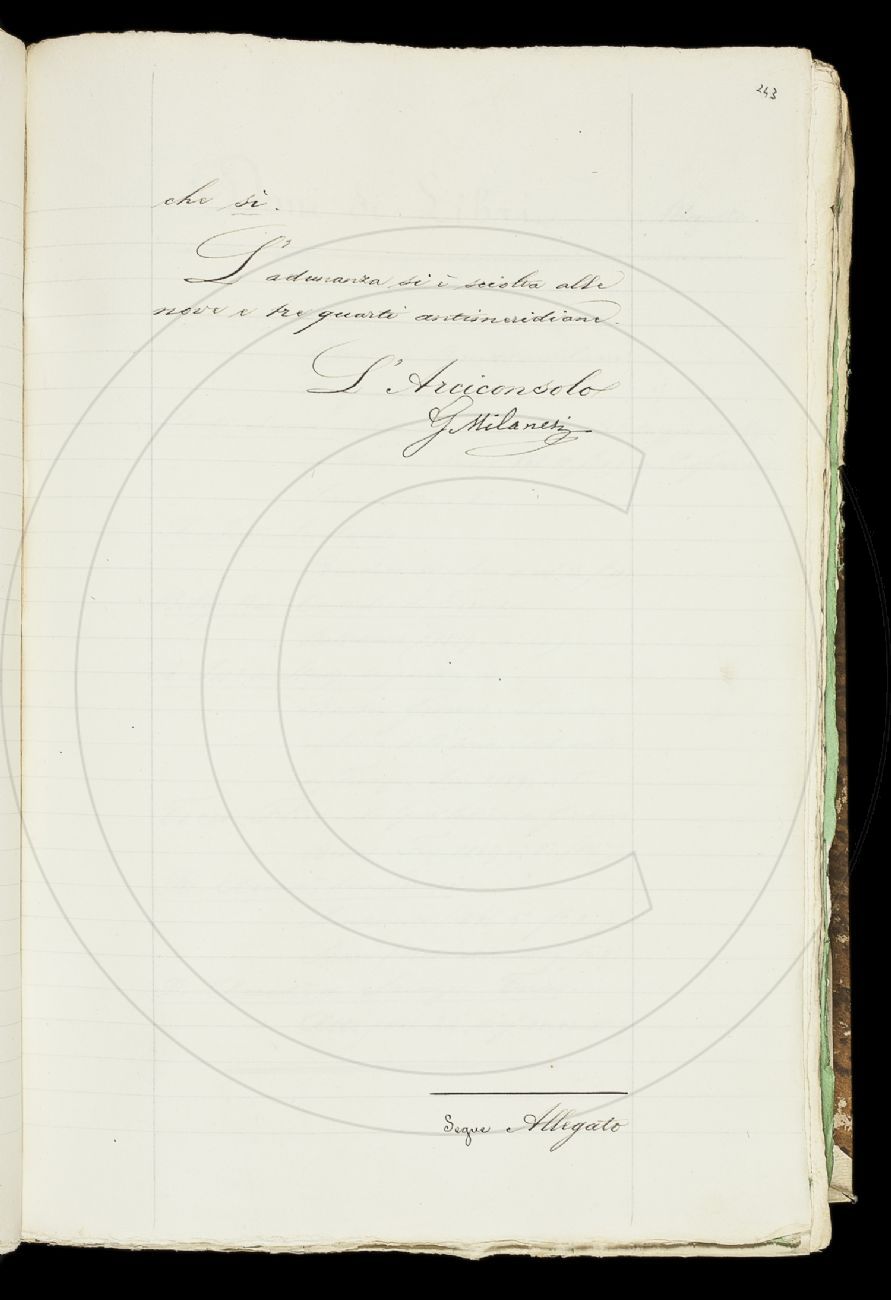 243
che sì.
L'adunanza si è sciolta alle
nove e tre quarti antimeridiane.
L'Arciconsolo
G Milanesi
Segue Allegato